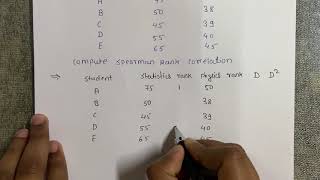 A
B 50 38
C 45 39
D 55 40
E 65 45
compute spearman Rank correlation
⇒ student statistics rank physics rank D D²
A 75 1 50
B 50 38
C 45 39
D 55 40
E 65